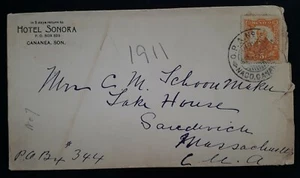 In 5 days return to
HOTEL SONORA
P. O. BOX 344
CANANEA, SON.
1911
Mrs C. M. Schoonmaker
Lake House
Sandwich
Massachusetts
U. S. A
P.O. Bx # 344